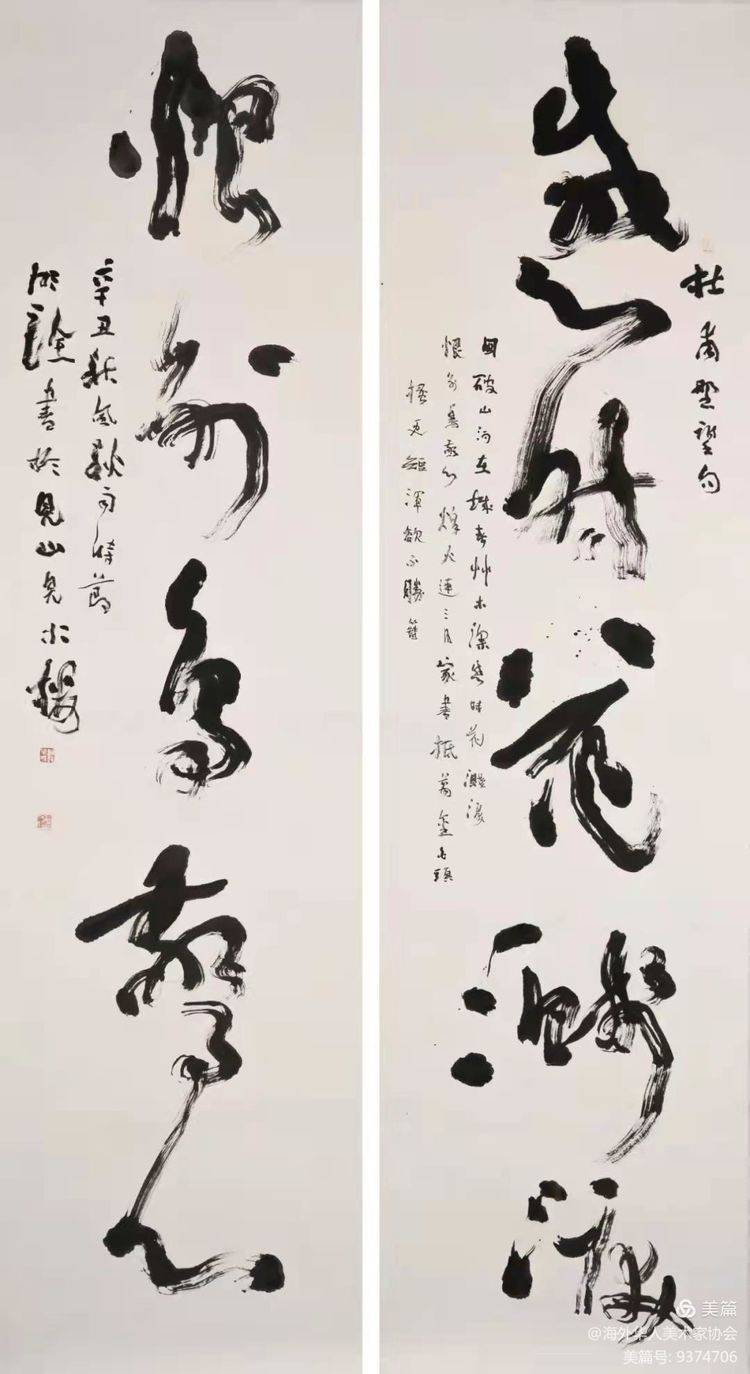 感時花濺淚
杜甫望句
國破山河在城春艸木深感時花濺淚
恨別鳥驚心烽火連三月家書抵萬金白頭
搔更短渾欲不勝簪
恨別鳥驚心
辛丑秋風秋雨時節
書於見山見水樓
美篇
@海外华人美术家协会
美篇号: 9374706